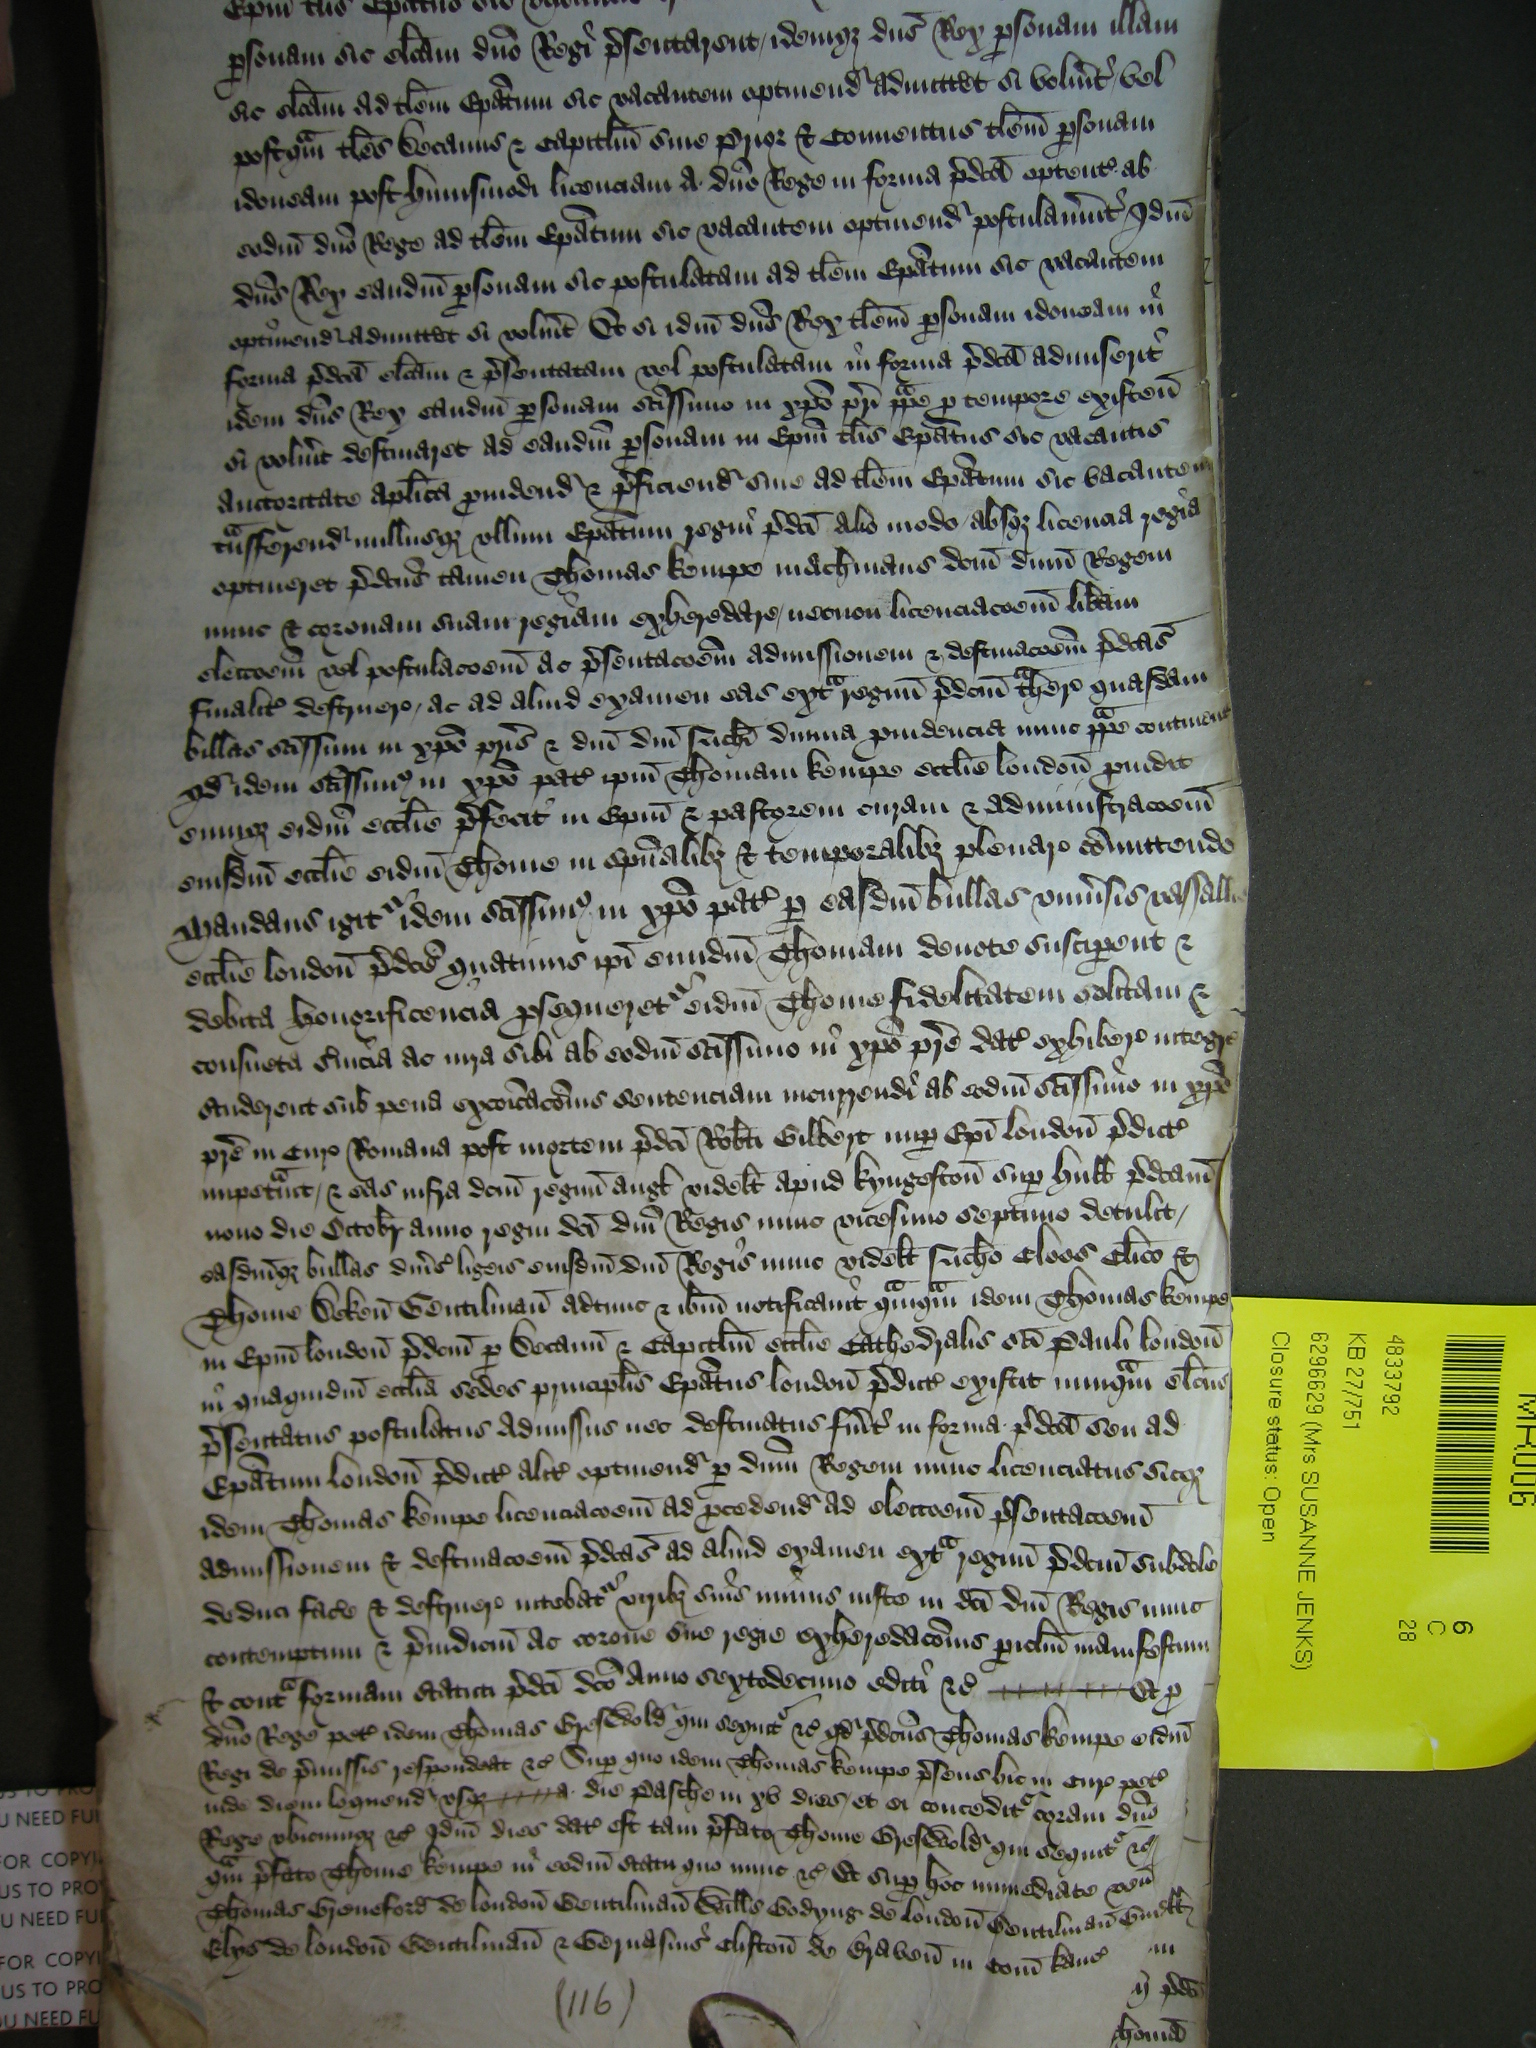 p̱sonam sic elc̄am dn̄o Regi p̄sentarent / idemqȝ dn̄s Rex p̱sonam illam
sic elc̄am ad tlēm Ep̄atum sic vacantem optinend' admittet si volu̱it vel
postqᵃm tlēs Decanus & Capitlm̄ siue Prior & Conuentus tlēm p̱sonam
idoneam post hui̱smodi licenciam a dn̄o Rege in forma p̄dc̄a optent' ab
eodm̄ dn̄o Rege ad tlēm Ep̄atum sic vacantem optinend' postulau̱int Idm̄
dn̄s Rex eandm̄ p̱sonam sic postulatam ad tlēm Ep̄atum sic vacantem
optinend' admittet si volu̱it Et si idm̄ dn̄s Rex tlēm p̱sonam idoneam in
forma p̄dc̄a elc̄am & p̄sentatam vel postulatam in forma p̄dc̄a admiserit
idem dn̄s Rex eandm̄ p̱sonam sc̄issimo in xp̄o pr̄i pp̄e p̱ tempore existen̄
si volu̱it destinaret ad eandm̄ p̱sonam in Ep̄m tlīs Ep̄atus sic vacantis
auctoritate aplīca p̱uidend' & p̄ficiend' siue ad tlēm Ep̄atum sic vacantem
tᵃnsferend' nullusqȝ ullum Ep̄atum regni p̄dc̄i alio modo absqȝ licencia regia
optineret p̄dc̄us tamen Thomas Kempe machinans dc̄m dn̄m Regem
nunc & coronam suam regiam exheredare / necnon licenciac̄oem lib̄am
elecc̄oem vel postulac̄oem ac p̄sentac̄oem admissionem & destinac̄oem p̄dc̄as
finalit' destruere / ac ad aliud examen eas extᵃ regnm̄ p̄dc̄m tᵃhere quasdam
bullas sc̄issimi in xp̄o pr̄is & dn̄i dn̄i Nich̄i diuina p̱uidencia nunc pp̄e continent'
qd' idem sc̄issimꝰ in xp̄o pat' ip̄m Thomam Kempe ecclīe london̄ p̱uidit
eumqȝ eidm̄ ecclīe p̄fecit in Ep̄m & pastorem curam & administrac̄oem
eiusdm̄ ecclīe eidm̄ Thome in spūalibȝ & temporalibȝ plenar' cōmittendo
Mandans igit' idem sc̄issimꝰ in xp̄o pat' p̱ easdm̄ bullas vniu̱sis vassallis
ecclīe london̄ p̄dc̄e quatinus ip̄i eundm̄ Thomam deuote suscip̱ent &
debita honorificencia p̱sequeret' eidm̄ Thome fidelitatem solitam &
consueta s̱uicia ac iura sibi ab eodm̄ sc̄issimo in xp̄o pr̄e dat' exhibere integre
studerent sub pena excōicac̄onis sentenciam incurrendi ab eodm̄ sc̄issimo in xp̄o
pr̄e in Cur' Romana post mortem p̄dc̄i Rob̄ti Gilbert nup̱ Ep̄i london̄ p̄dict'
impetᵃuit / & eas infra dc̄m regnm̄ angl̄ videl̄t apud Kyngeston̄ sup̱ Hull̄ p̄dc̄am
nono die Octobr̄ anno regni dc̄i dn̄i Regis nunc vicesimo septimo detulit /
easdmqȝ bullas diu̱s ligeis eiusdm̄ dn̄i Regis nunc videl̄t Nich̄o Cloos Cl̄ico &
Thome Beken̄ Gentilman̄ adtunc & ib̄m notificauit qᵃmqᵃm idem Thomas Kempe
in Ep̄m london̄ p̄dc̄m p̱ Decanm̄ & Capitlm̄ ecclīe Cathedralis sc̄i Pauli london̄
in quaquidm̄ ecclīa sedes principlīs Ep̄atus london̄ p̄dict' existit nunqᵃm elc̄us
p̄sentatus postulatus admissus nec destinatus fu̱it in forma p̄dc̄a seu ad
Ep̄atum london̄ p̄dict' alit' optinend' p̱ dn̄m Regem nunc licenciatus sicqȝ
idem Thomas Kempe licenciac̄oem ad p̱cedend' ad elecc̄oem p̄sentac̄oem
admissionem & destinac̄oem p̄dc̄as ad aliud examen extᵃ regnm̄ p̄dc̄m subdole
deduci fac̄e & destruere nitebat' viribȝ suis minus iuste in dc̄i dn̄i Regis nunc
contemptum & p̄iudicm̄ ac corone sue regie exheredac̄onis p̱iclm̄ manifestum
& contᵃ formam statuti p̄dc̄i dc̄o Anno sextodecimo editi &c̄ Et p̱
dn̄o Rege pet' idem Thomas Greswold' qui sequit' &c̄ qd' p̄dc̄us Thomas Kempe eidm̄
Regi de p̄missis respondeat &c̄ Sup̱ quo idem Thomas Kempe p̄sens hic in Cur' pet'
inde diem loquend' vsqȝ a die Pasche in xv dies / et ei conceditᵣ coram dn̄o
Rege vbicumqȝ &c̄ Idm̄ dies dat' est tam p̄fato Thome Greswold' qui sequit' &c̄
qᵃm p̄fato Thome Kempe in eodm̄ statu quo nunc &c̄ Et sup̱ hoc immediate ven̄
Thomas Greneford' de london̄ Gentilman̄ Will̄s Godyng de london̄ Gentilman̄
Elys de london̄ Gentilman̄ & Geruasius Clifton̄ de Braborn̄ in Com̄ Kanc'
(116)
MR006
6
C
28
4833792
KB 27/751
6296629 (Mrs SUSANNE JENKS)
Closure status: Open